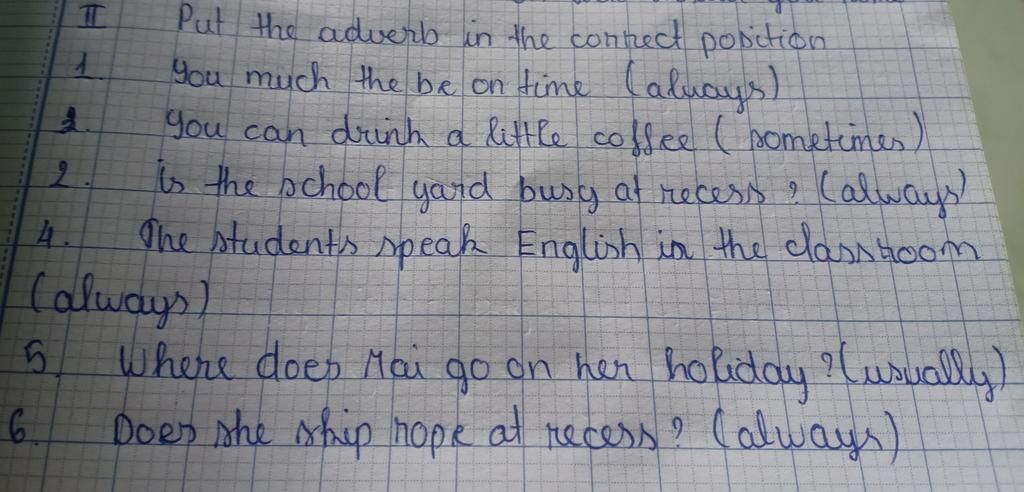 II Put the adverb in the correct position
1. You much the be on time (always)
2. You can drink a little coffee (sometimes)
2. Is the school yard busy at recess? (always)
4. The students speak English in the classroom
(always)
5. Where does Mai go on her holiday? (usually)
6. Does she skip rope at recess? (always)